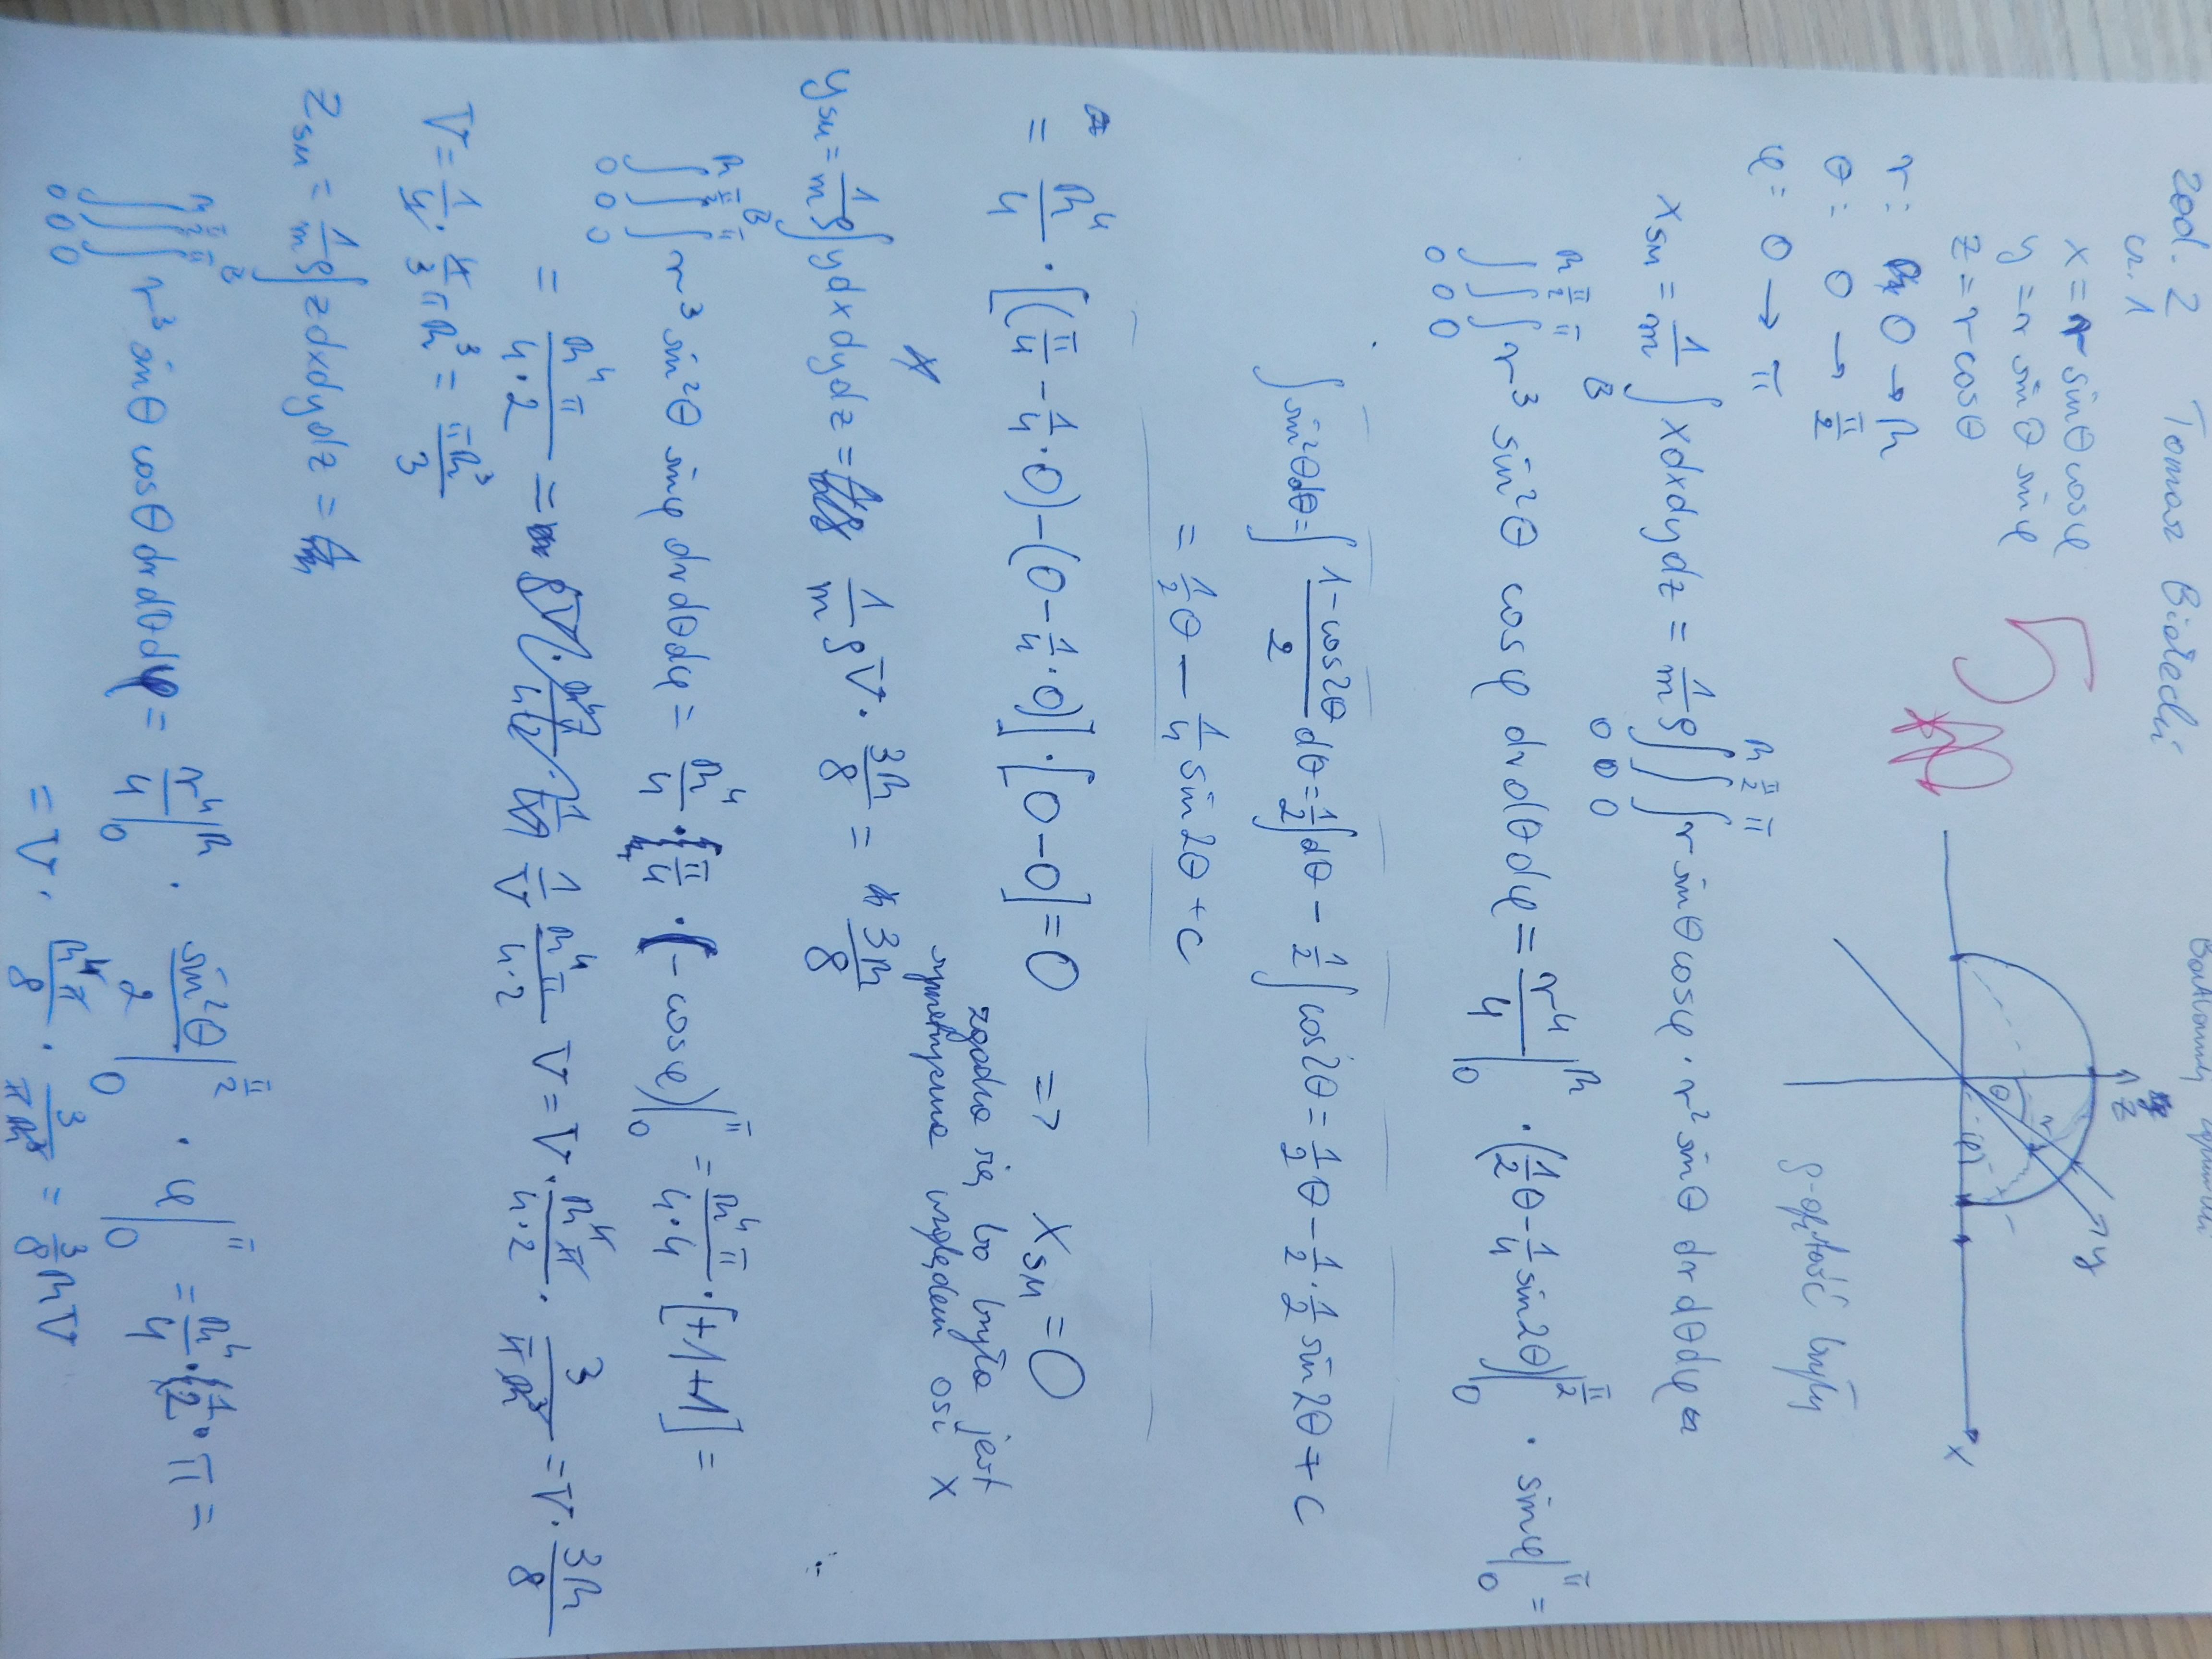 zad. 2 Tomasz
cz. 1
x = r sinθ cosφ
y = r sinθ sinφ
z = r cosθ
5
r: 0 → R
θ: 0 → π/2
φ: 0 → π
z
y
x
θ
r
φ
ρ - gęstość bryły
x_SM = 1/m ∫_B x dxdydz = 1/m ρ ∫_0^R ∫_0^{π/2} ∫_0^π r sinθ cosφ · r² sinθ dr dθ dφ
∫_0^R ∫_0^{π/2} ∫_0^π r³ sin²θ cosφ dr dθ dφ = r⁴/4 |_0^R · (1/2 θ - 1/4 sin2θ)|_0^{π/2} · sinφ |_0^π =
∫ sin²θ dθ = ∫ (1 - cos2θ)/2 dθ = 1/2 ∫ dθ - 1/2 ∫ cos2θ = 1/2 θ - 1/2 · 1/2 sin2θ + C
= 1/2 θ - 1/4 sin2θ + C
= R⁴/4 · [(π/4 - 1/4 · 0) - (0 - 1/4 · 0)] · [0 - 0] = 0 => x_SM = 0
zgadza się, bo bryła jest
symetryczna względem osi x
y_SM = 1/m ρ ∫_B y dxdydz = 1/m ρ V · 3R/8 = 3R/8
∫_0^R ∫_0^{π/2} ∫_0^π r³ sin²θ sinφ dr dθ dφ = R⁴/4 · π/4 · (-cosφ)|_0^π = R⁴π/4·4 · [+1+1] =
= R⁴π/4·2 = 1/V R⁴π/4·2 V = V · R⁴π/4·2 · 3/πR³ = V · 3R/8
V = 1/4 · 4/3 πR³ = πR³/3
z_SM = 1/m ρ ∫_B z dxdydz =
∫_0^R ∫_0^{π/2} ∫_0^π r³ sinθ cosθ dr dθ dφ = r⁴/4 |_0^R · sin²θ/2 |_0^{π/2} · φ |_0^π = R⁴/4 · 1/2 · π =
= V · R⁴π/8 · 3/πR³ = 3/8 RV